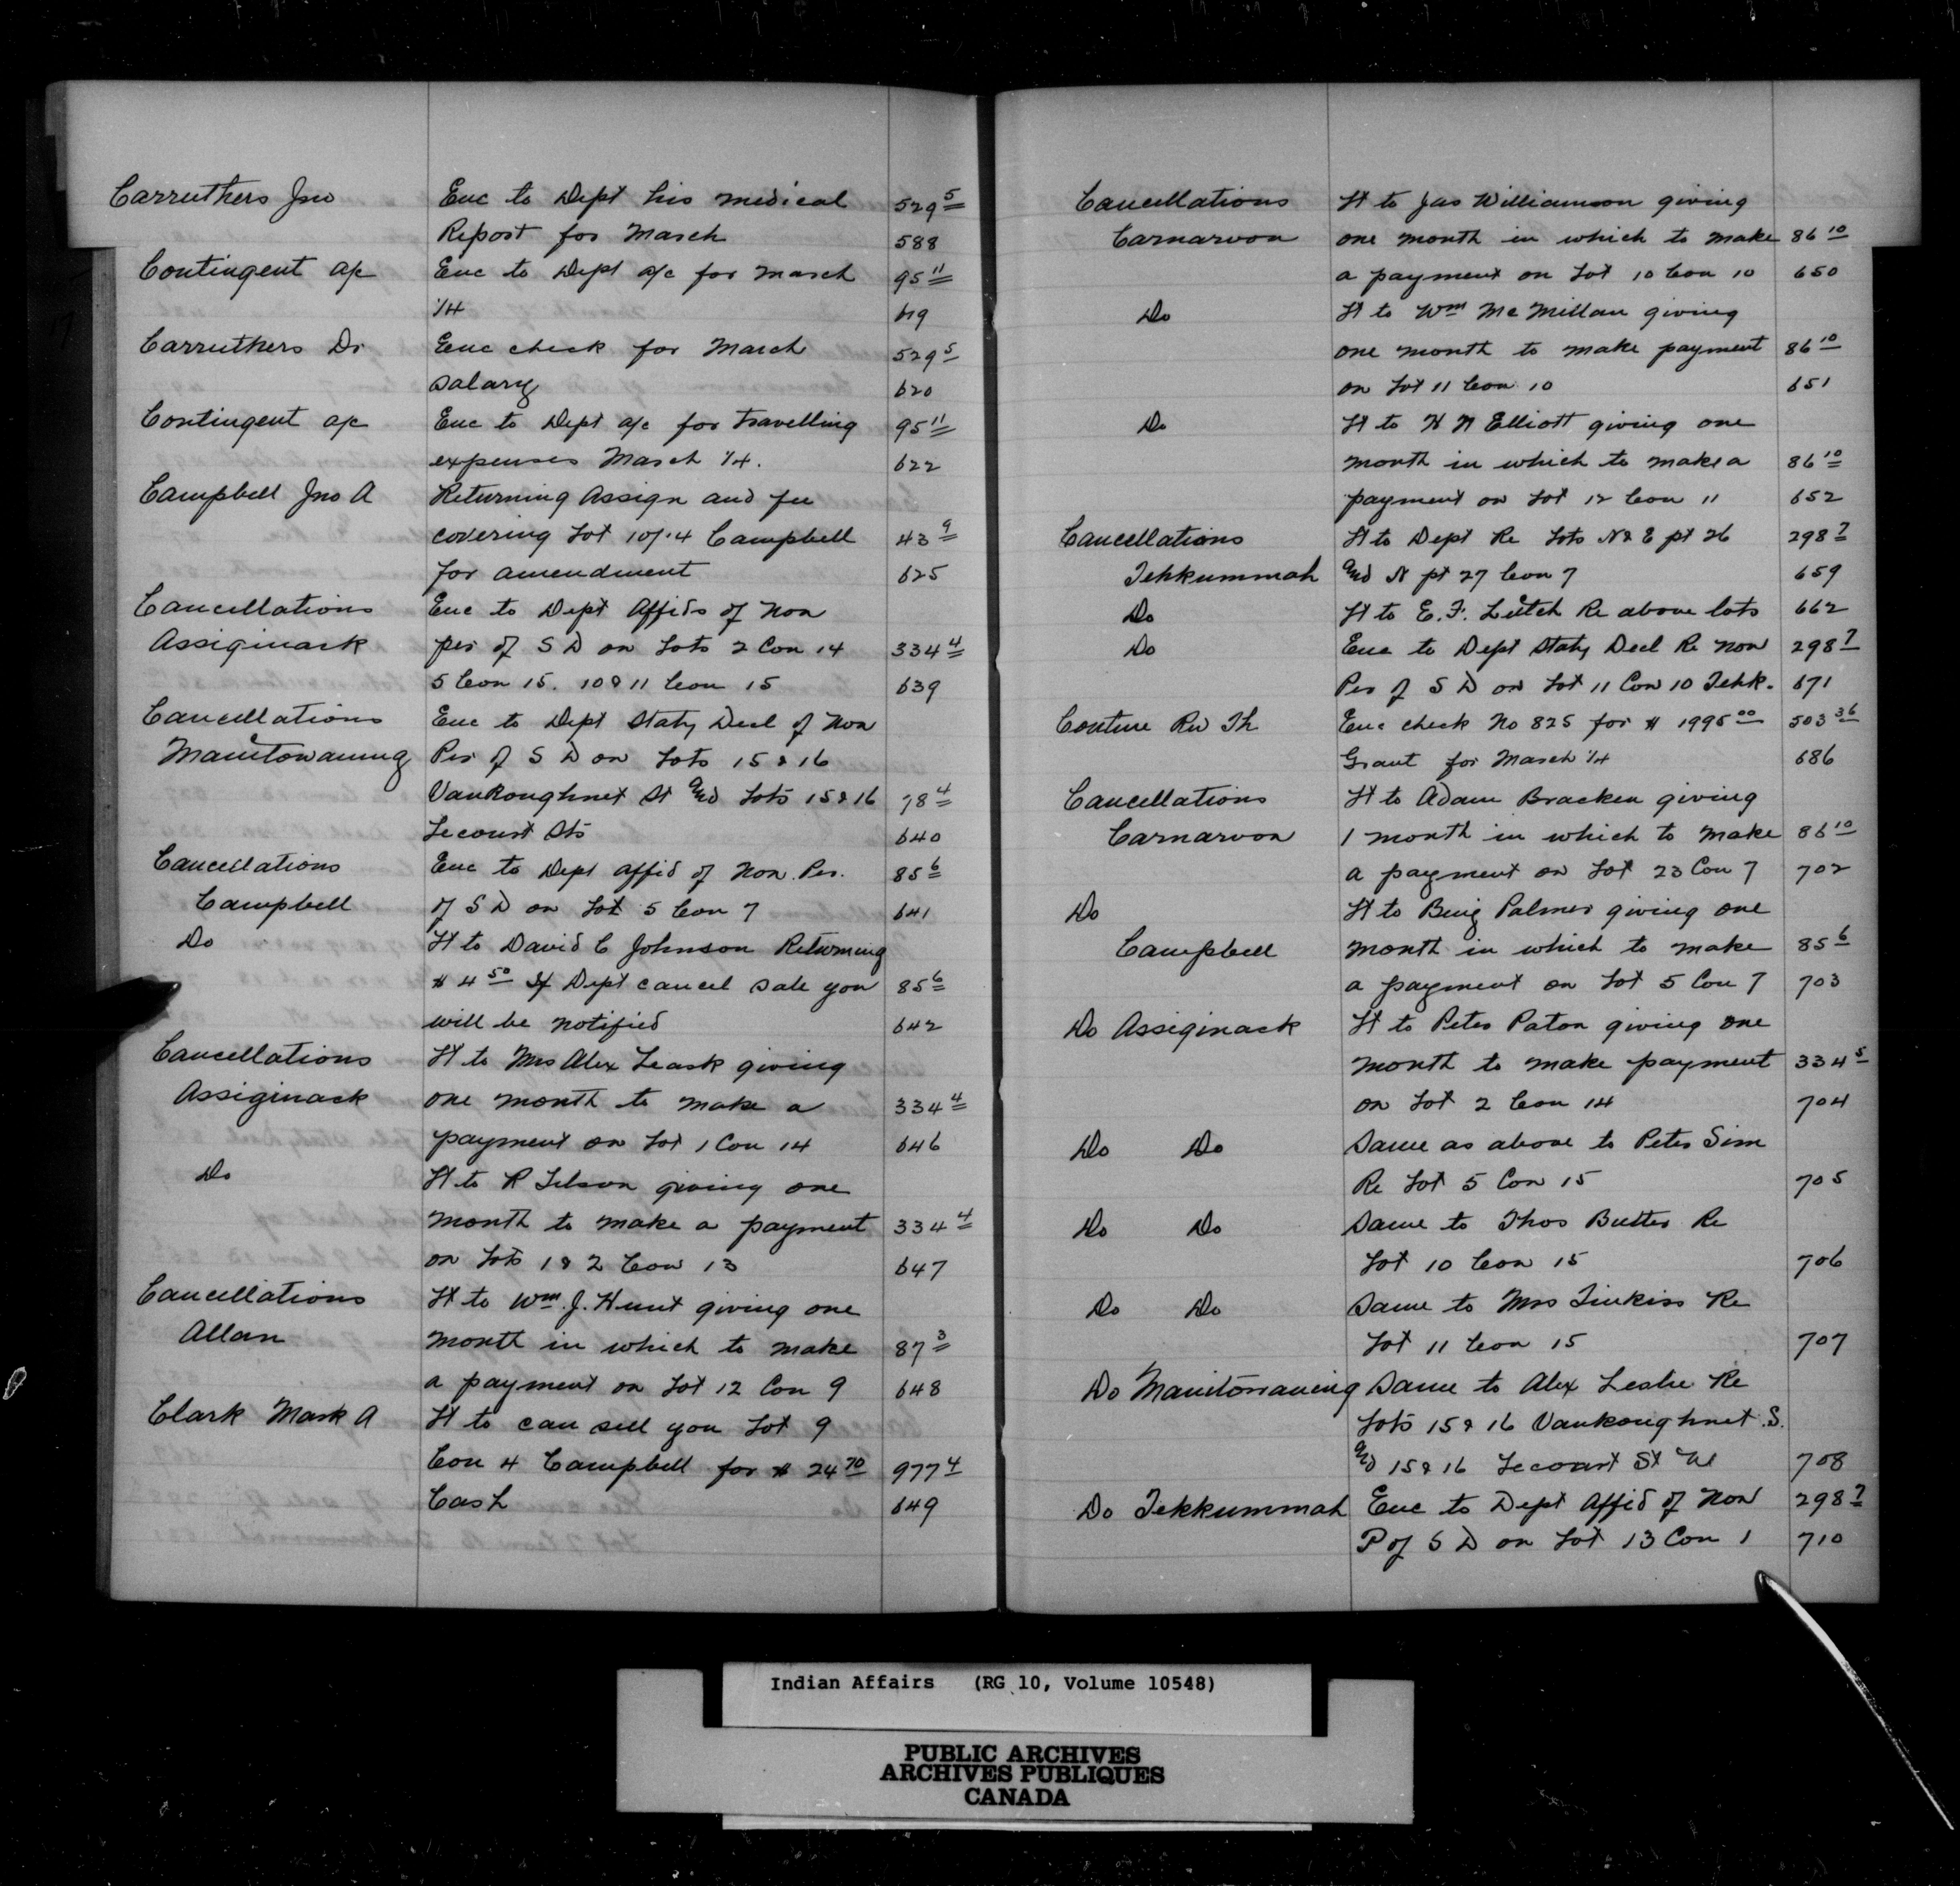 Carruthers Jno Enc to Dept his medical 529 5
Report for March 588
Contingent a/c Enc to Dept a/c for March 95 11
1/4 619
Carruthers Dr Enc check for March 529 5
Salary 620
Contingent a/c Enc to Dept a/c for travelling 95 11
expenses March 1/4. 622
Campbell Jno A Returning Assign and fee
covering Lot 10/14 Campbell 43 9
for amendment 625
Cancellations Enc to Dept Affids of Non
Assiginack per of S D on Lots 2 Con 14 334 4
5 Con 15. 10 & 11 Con 15 639
Cancellations Enc to Dept Staty Decl of Non
Manitowaning Per of S D on Lots 15 & 16
VanKoughnet St and Lots 15 & 16 78 4
Lecourt Sts 640
Cancellations Enc to Dept Affid of Non. Per. 85 6
Campbell of S D on Lot 5 Con 7 641
Do Lt to David C Johnson Returning
$ 4 50 If Dept cancel sale you 85 6
will be notified 642
Cancellations Lt to Mrs Alex Leask giving
Assiginack one month to make a 334 4
payment on Lot 1 Con 14 646
Do Lt to R Tilson giving one
month to make a payment 334 4
on Lots 1 & 2 Con 13 647
Cancellations Lt to Wm. J. Hunt giving one
Allan month in which to make 87 3
a payment on Lot 12 Con 9 648
Clark Mark A Lt to can sell you Lot 9
Con 4 Campbell for $ 24 70 977 4
Cash 649
Cancellations Lt to Jas Williamson giving
Carnarvon one month in which to make 86 10
a payment on Lot 10 Con 10 650
Do Lt to Wm McMillan giving
one month to make payment 86 10
on Lot 11 Con 10 651
Do Lt to H N Elliott giving one
month in which to make a 86 10
payment on Lot 12 Con 11 652
Cancellations Lt to Dept Re Lots N & E pt 26 298 7
Tehkummah and N pt 27 Con 7 659
Do Lt to E. F. Leitch Re above lots 662
Do Enc to Dept Staty Decl Re Non 298 7
Per of S D on Lot 11 Con 10 Tehk. 671
Couture Rev Th Enc check No 825 for $ 1995 00 503 36
Grant for March 1/4 686
Cancellations Lt to Adam Bracken giving
Carnarvon 1 month in which to make 86 10
a payment on Lot 23 Con 7 702
Do Lt to Benj Palmer giving one
Campbell month in which to make 85 6
a payment on Lot 5 Con 7 703
Do Assiginack Lt to Peter Paton giving one
month to make payment 334 5
on Lot 2 Con 14 704
Do Do Same as above to Peter Sim
Re Lot 5 Con 15 705
Do Do Same to Thos Butter Re
Lot 10 Con 15 706
Do Do Same to Mrs Jinkiss Re
Lot 11 Con 15 707
Do Manitowaning Same to Alex Leslie Re
Lots 15 & 16 Vankoughnet S.
and 15 & 16 Lecourt St 708
Do Tehkummah Enc to Dept Affid of Non 298 7
P of S D on Lot 13 Con 1 710
Indian Affairs (RG 10, Volume 10548)
PUBLIC ARCHIVES
ARCHIVES PUBLIQUES
CANADA